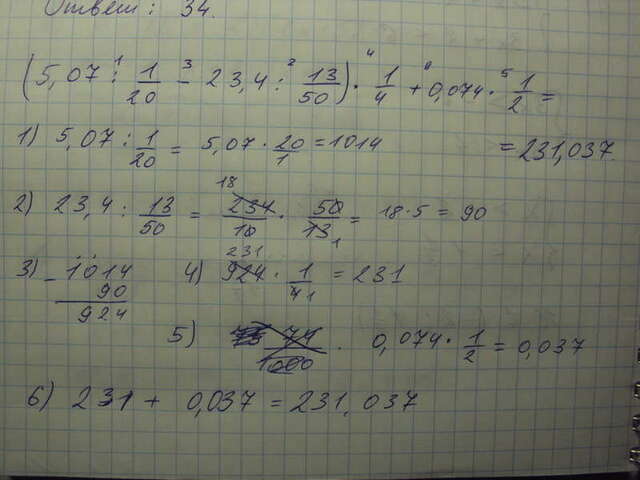 Ответ: 34.
(5,07 : 1/20 - 23,4 : 13/50) · 1/4 + 0,074 · 1/2 =
1) 5,07 : 1/20 = 5,07 · 20/1 = 1014
= 231,037.
2) 23,4 : 13/50 = 234/10 · 50/13 = 18 · 5 = 90
3) - 1014
90
924
4) 924 · 1/4 = 231
5) 74/1000 · 0,074 · 1/2 = 0,037
6) 231 + 0,037 = 231,037